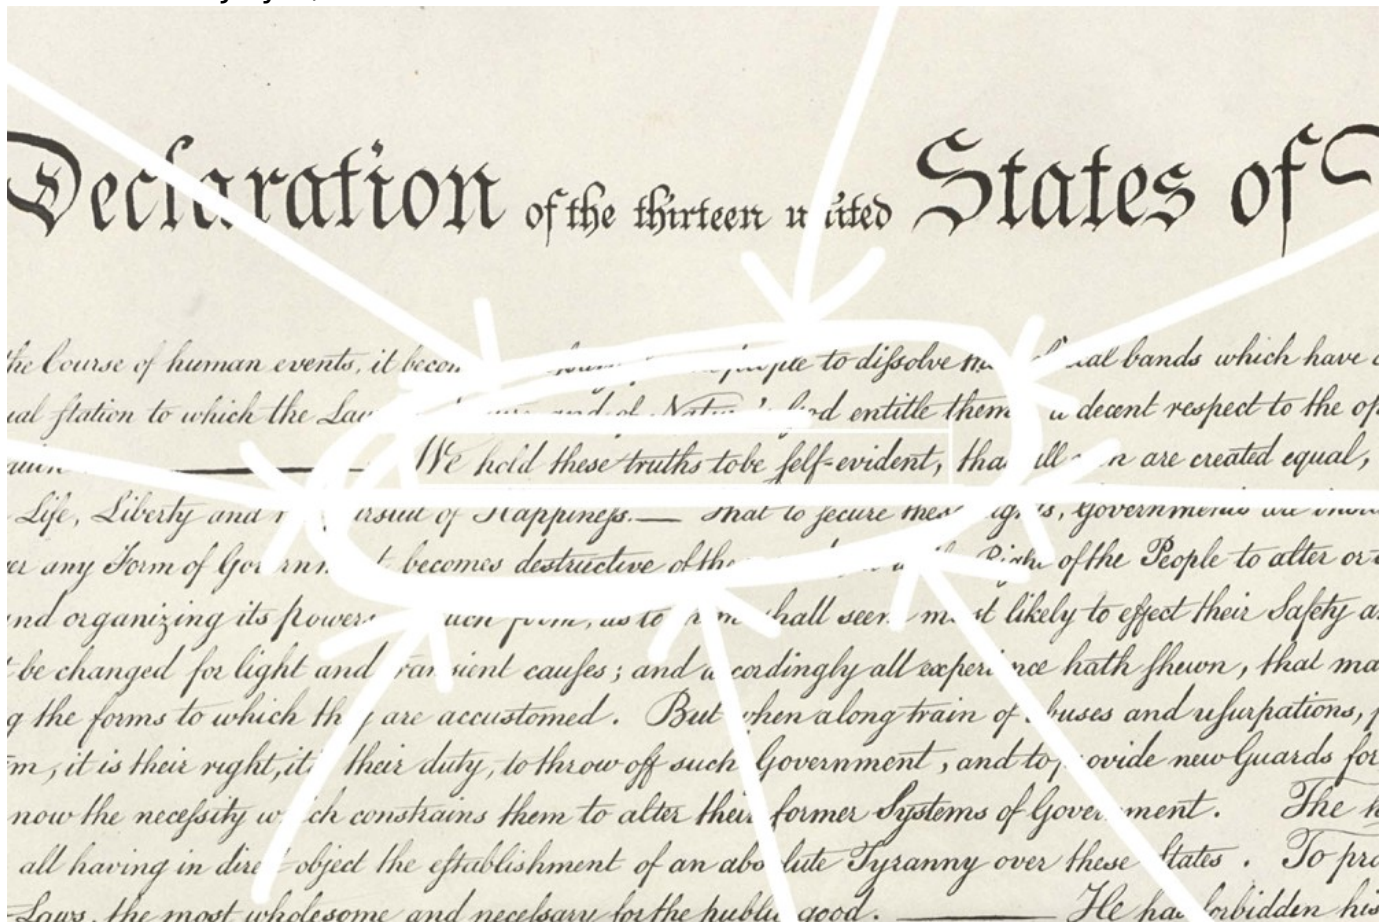 Declaration of the thirteen united States of
the Course of human events, it to dissolve bands which have
ual station to which the and of Nature's God entitle them a decent respect to the
We hold these truths to be self-evident, that all men are created equal,
Life, Liberty and Pursuit of Happiness. — That to secure these rights, Governments are
any Form of Government becomes destructive of the Right of the People to alter or
and organizing its powers such form, as to them shall seem most likely to effect their Safety
be changed for light and transient causes; and accordingly all experience hath shewn, that
the forms to which they are accustomed. But when a long train of abuses and usurpations,
it is their right, it is their duty, to throw off such Government, and to provide new Guards for
now the necessity which constrains them to alter their former Systems of Government. The
all having in direct object the establishment of an absolute Tyranny over these States. To
Laws, the most wholesome and necessary for the public good. — He has forbidden his